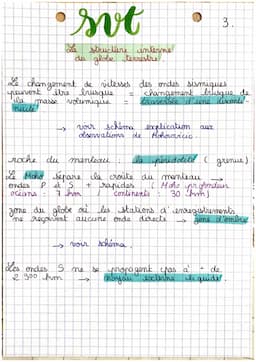 svt
3.
La structure interne
du globe terrestre
Le changement de vitesses des ondes sismiques
peuvent être brusque = changement brusque de
la masse volumique = traversée d'une disconti-
nuité
→ voir schéma explication aux
observations de Mohorovicic
roche du manteau : la péridotite ( grenus)
Le Moho sépare la croûte du manteau →
ondes P et S + rapides ( Moho profondeur
océans : 7 km continents : 30 km)
zone du globe où les stations d'enregistrements
ne reçoivent aucune onde directe → zone d'ombre
→ voir schéma.
Les ondes S ne se propagent pas à + de
2 900 km → noyau externe liquide.